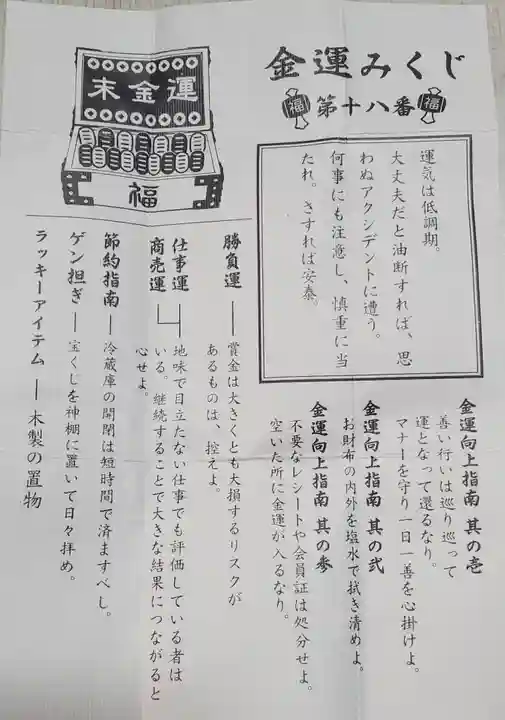 金運みくじ
福
第十八番
福
運気は低調期。
大丈夫だと油断すれば、思
わぬアクシデントに遭う。
何事にも注意し、慎重に当
たれ。さすれば安泰。
末金運
福
金運向上指南 其の壱
善い行いは巡り巡って
運となって還るなり。
マナーを守り一日一善を心掛けよ。
金運向上指南 其の弐
お財布の内外を塩水で拭き清めよ。
金運向上指南 其の参
不要なレシートや会員証は処分せよ。
空いた所に金運が入るなり。
勝負運
賞金は大きくとも大損するリスクが
あるものは、控えよ。
仕事運
商売運
地味で目立たない仕事でも評価している者は
いる。継続することで大きな結果につながると
心せよ。
節約指南
冷蔵庫の開閉は短時間で済ますべし。
ゲン担ぎ
宝くじを神棚に置いて日々拝め。
ラッキーアイテム
木製の置物